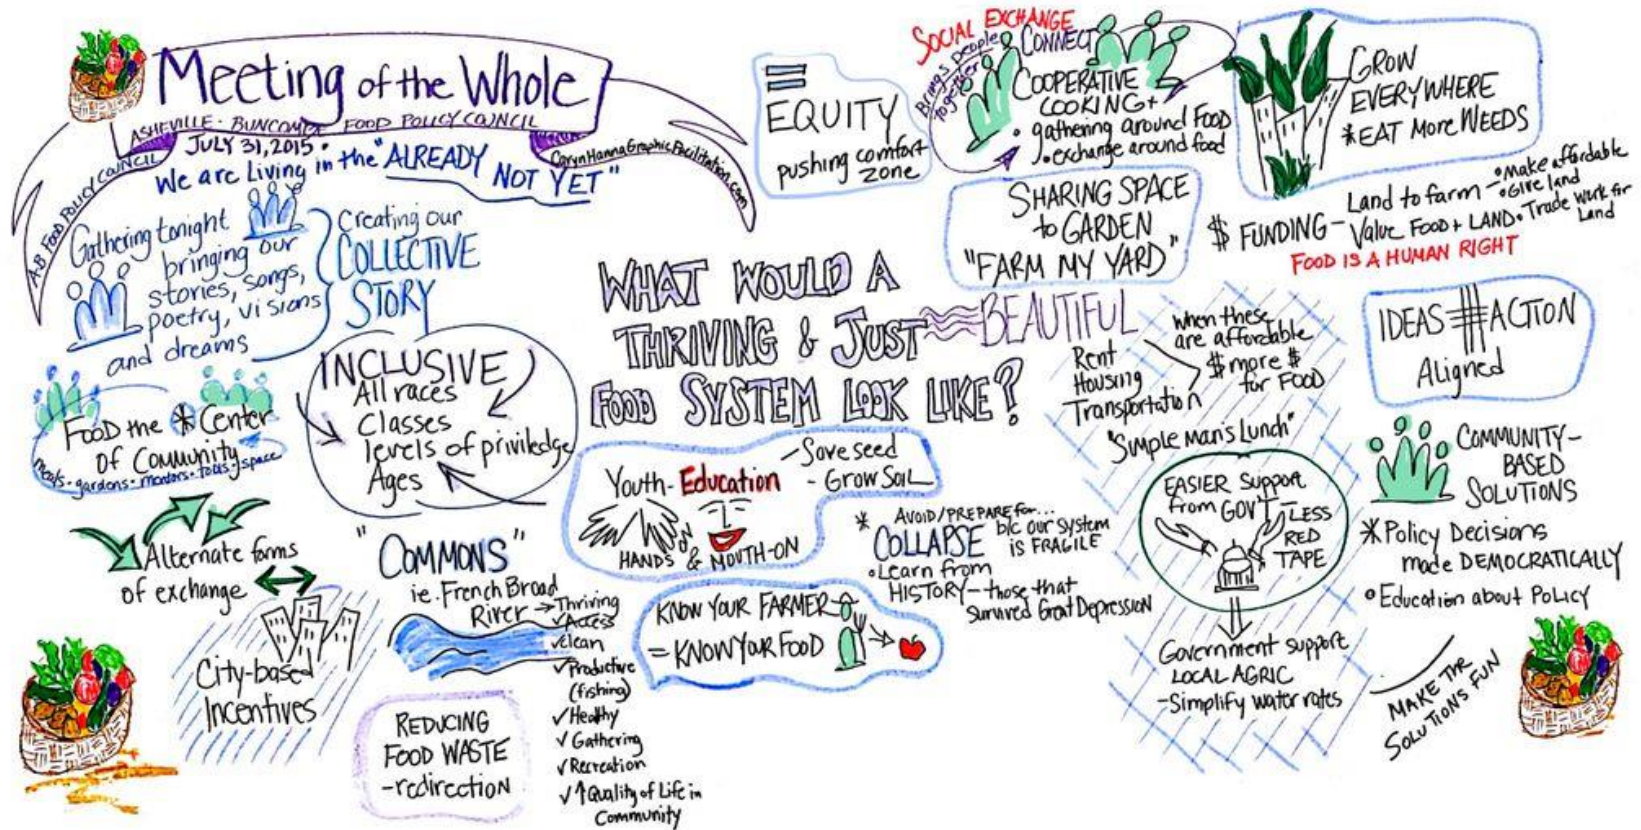 Meeting of the Whole
ASHEVILLE - BUNCOMBE FOOD POLICY COUNCIL
A-B FOOD POLICY COUNCIL
JULY 31, 2015 •
CarynHannaGraphicFacilitation.com
We are Living in the "ALREADY
NOT YET"
Gathering tonight
bringing our
stories, songs,
poetry, visions
and dreams
Creating our
COLLECTIVE
STORY
FOOD the * Center
of Community
meals • gardens • mentors • tools • space
INCLUSIVE
All races
Classes
levels of priviledge
Ages
Alternate forms
of exchange
City-based
Incentives
"COMMONS"
ie. French Broad
River → Thriving
✓ Access
✓ clean
✓ Productive
(fishing)
✓ Healthy
✓ Gathering
✓ Recreation
✓ ↑ Quality of Life in
Community
REDUCING
FOOD WASTE
- redirection
WHAT WOULD A
THRIVING & JUST
BEAUTIFUL
FOOD SYSTEM LOOK LIKE?
Youth - Education
- Save seed
- Grow SoiL
HANDS ON
& MOUTH-ON
KNOW YOUR FARMER
= KNOW YOUR FOOD
* AVOID/PREPARE for...
COLLAPSE b/c our system
is FRAGILE
• Learn from
HISTORY - those that
survived Great Depression
= EQUITY
pushing comfort
zone
SOCIAL EXCHANGE
Brings people
together
CONNECT
COOPERATIVE
COOKING +
• gathering around FOOD
• exchange around food
SHARING SPACE
to GARDEN
"FARM MY YARD"
GROW
EVERYWHERE
* EAT More WEEDS
$ FUNDING -
Land to farm - • Make affordable
• Give land
Value FOOD + LAND • Trade work for
Land
FOOD IS A HUMAN RIGHT
Rent
Housing
Transportation
when these
are affordable
$ more $
for FOOD
"Simple Man's Lunch"
EASIER Support
from GOV'T - LESS
RED
TAPE
Government support
LOCAL AGRIC
- Simplify water rates
IDEAS ACTION
Aligned
COMMUNITY-
BASED
SOLUTIONS
* Policy Decisions
made DEMOCRATICALLY
• Education about POLICY
MAKE THE
SOLUTIONS FUN